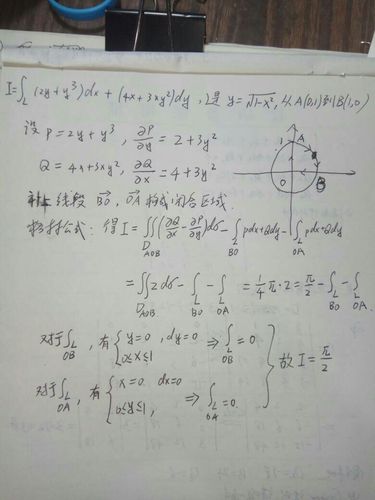 I=∫_L (2y+y³)dx + (4x+3xy²)dy, L是 y=√(1-x²), 从A(0,1)到B(1,0)
设 P=2y+y³, ∂P/∂y = 2+3y²
Q=4x+3xy², ∂Q/∂x = 4+3y²
1 A
O B
补线段 BO, OA 构成闭合区域.
格林公式: 得 I = ∬_{D_AOB} (∂Q/∂x - ∂P/∂y)dσ - ∫_{L BO} Pdx+Qdy - ∫_{L OA} Pdx+Qdy
= ∬_{D_AOB} 2dσ - ∫_{L BO} - ∫_{L OA} = 1/4 π·2 = π/2 - ∫_{L BO} - ∫_{L OA}
对于∫_{L OB}, 有 { y=0, dy=0 0≤x≤1 ⇒ ∫_{L OB} = 0
对于∫_{L OA}, 有 { x=0 dx=0 0≤y≤1, ⇒ ∫_{L OA} = 0.
} 故 I = π/2